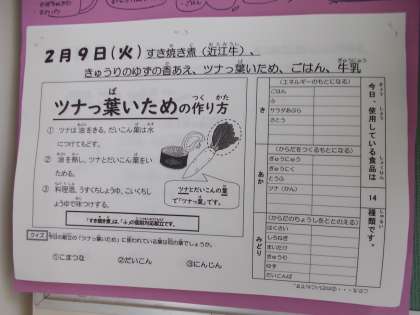 2月9日(火) すき焼き煮(近江牛)、
きゅうりのゆずの香あえ、ツナっ葉いため、ごはん、牛乳
ツナっ葉いための作り方
① ツナは油をきる。だいこん葉は水
につけてもどす。
② 油を熱し、ツナとだいこん葉をい
ためる。
③ 料理酒、うすくちしょうゆ、こいくちし
ょうゆで味つけする。
ツナとだいこんの葉
で「ツナっ葉」です。
クイズ 今日の献立の「ツナっ葉いため」に使われている葉は何の葉でしょうか。
①こまつな ②だいこん ③にんじん
今日、使用している食品は 14 種類です。
き
(エネルギーのもとになる)
ごはん
ふ
サラダあぶら
さとう
あか
(からだをつくるもとになる)
ぎゅうにゅう
ぎゅうにく
とうふ
ツナ(かん)
みどり
(からだのちょうしをととのえる)
はくさい
しろねぎ
まいたけ
きゅうり
ゆず
だいこんば